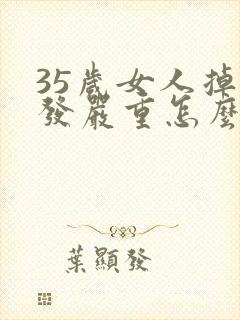 35歲女人掉
發嚴重怎麼
葉顯發